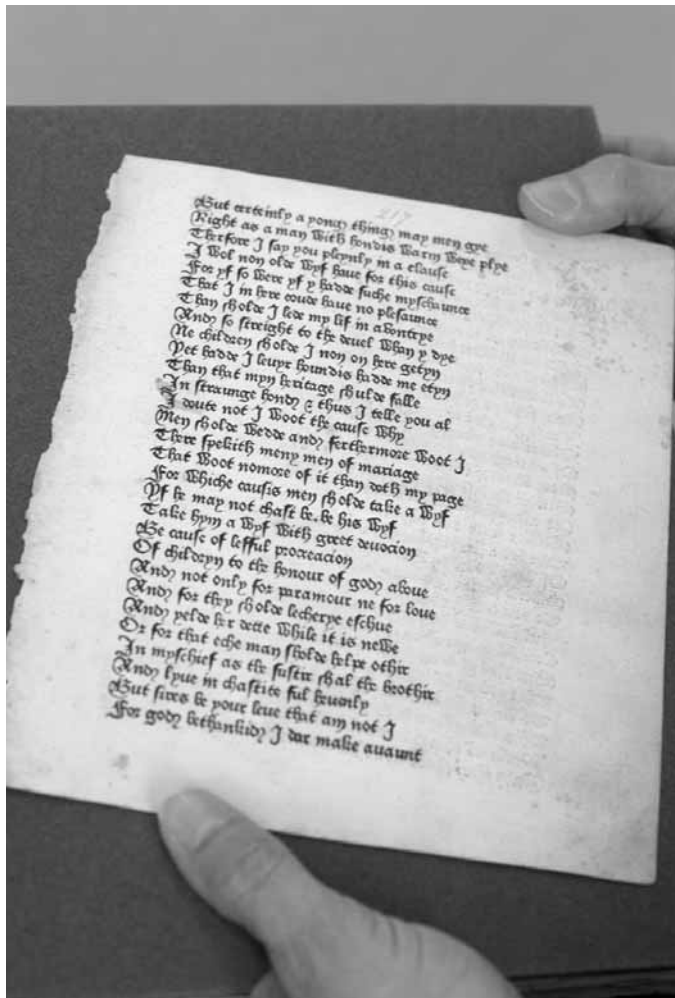 217
But certeinly a yong thing may men gye
Right as a man with hondis warm wexe plye
Therfore I say you pleynly in a clause
I wol non olde wyf have for this cause
For yf so were yf y hadde suche myschaunce
That I in here coude have no plesaunce
Than sholde I lede my lif in avoutrye
And so streight to the devel whan y dye
Ne children sholde I non on here getyn
Yet hadde I levyr houndis hadde me etyn
Than that myn heritage shulde falle
In straunge hond & thus I telle you al
I doute not I woot the cause why
Men sholde wedde and ferthermore woot I
There spekith meny men of mariage
That woot nomore of it than doth my page
For whiche causis men sholde take a wyf
Yf he may not chast be. be his wyf
Take hym a wyf with greet devocion
Be cause of lefful procreacion
Of childryn to the honour of god above
And not only for paramour ne for love
And for they sholde lecherye eschue
And yelde her dette while it is newe
Or for that eche man sholde helpe othir
In myschief as the suster shal the brothir
And lyve in chastite ful hevenly
But sires be your leve that am not I
For god bethankid I dar make avaunt